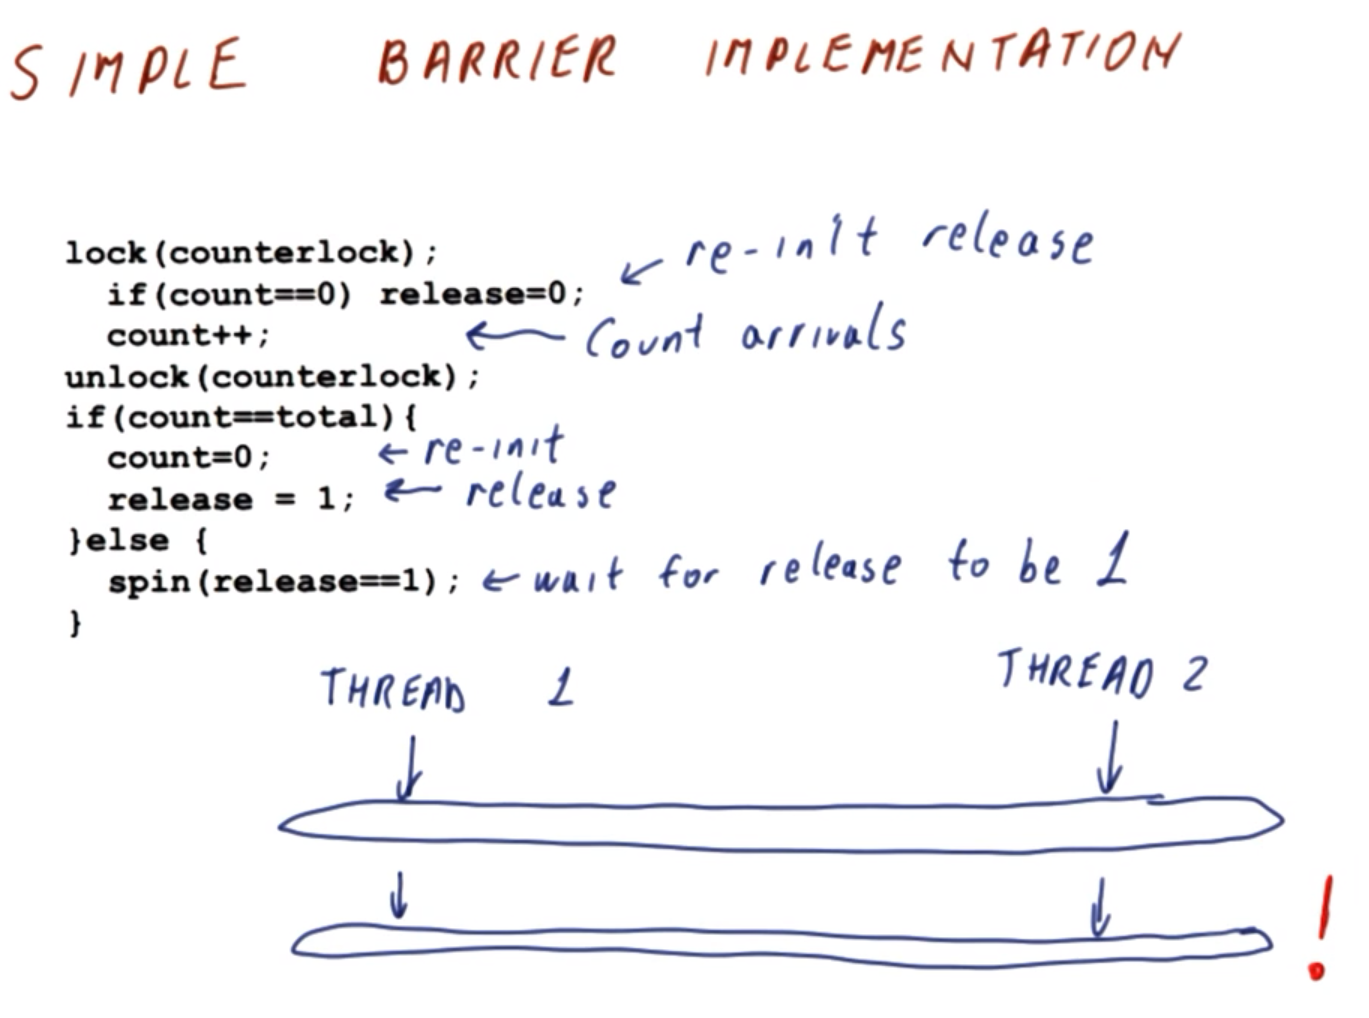 SIMPLE BARRIER IMPLEMENTATION
lock(counterlock);
if(count==0) release=0; ← re-init release
count++; ← Count arrivals
unlock(counterlock);
if(count==total){
count=0; ← re-init
release = 1; ← release
}else {
spin(release==1); ← wait for release to be 1
}
THREAD 1 THREAD 2
!